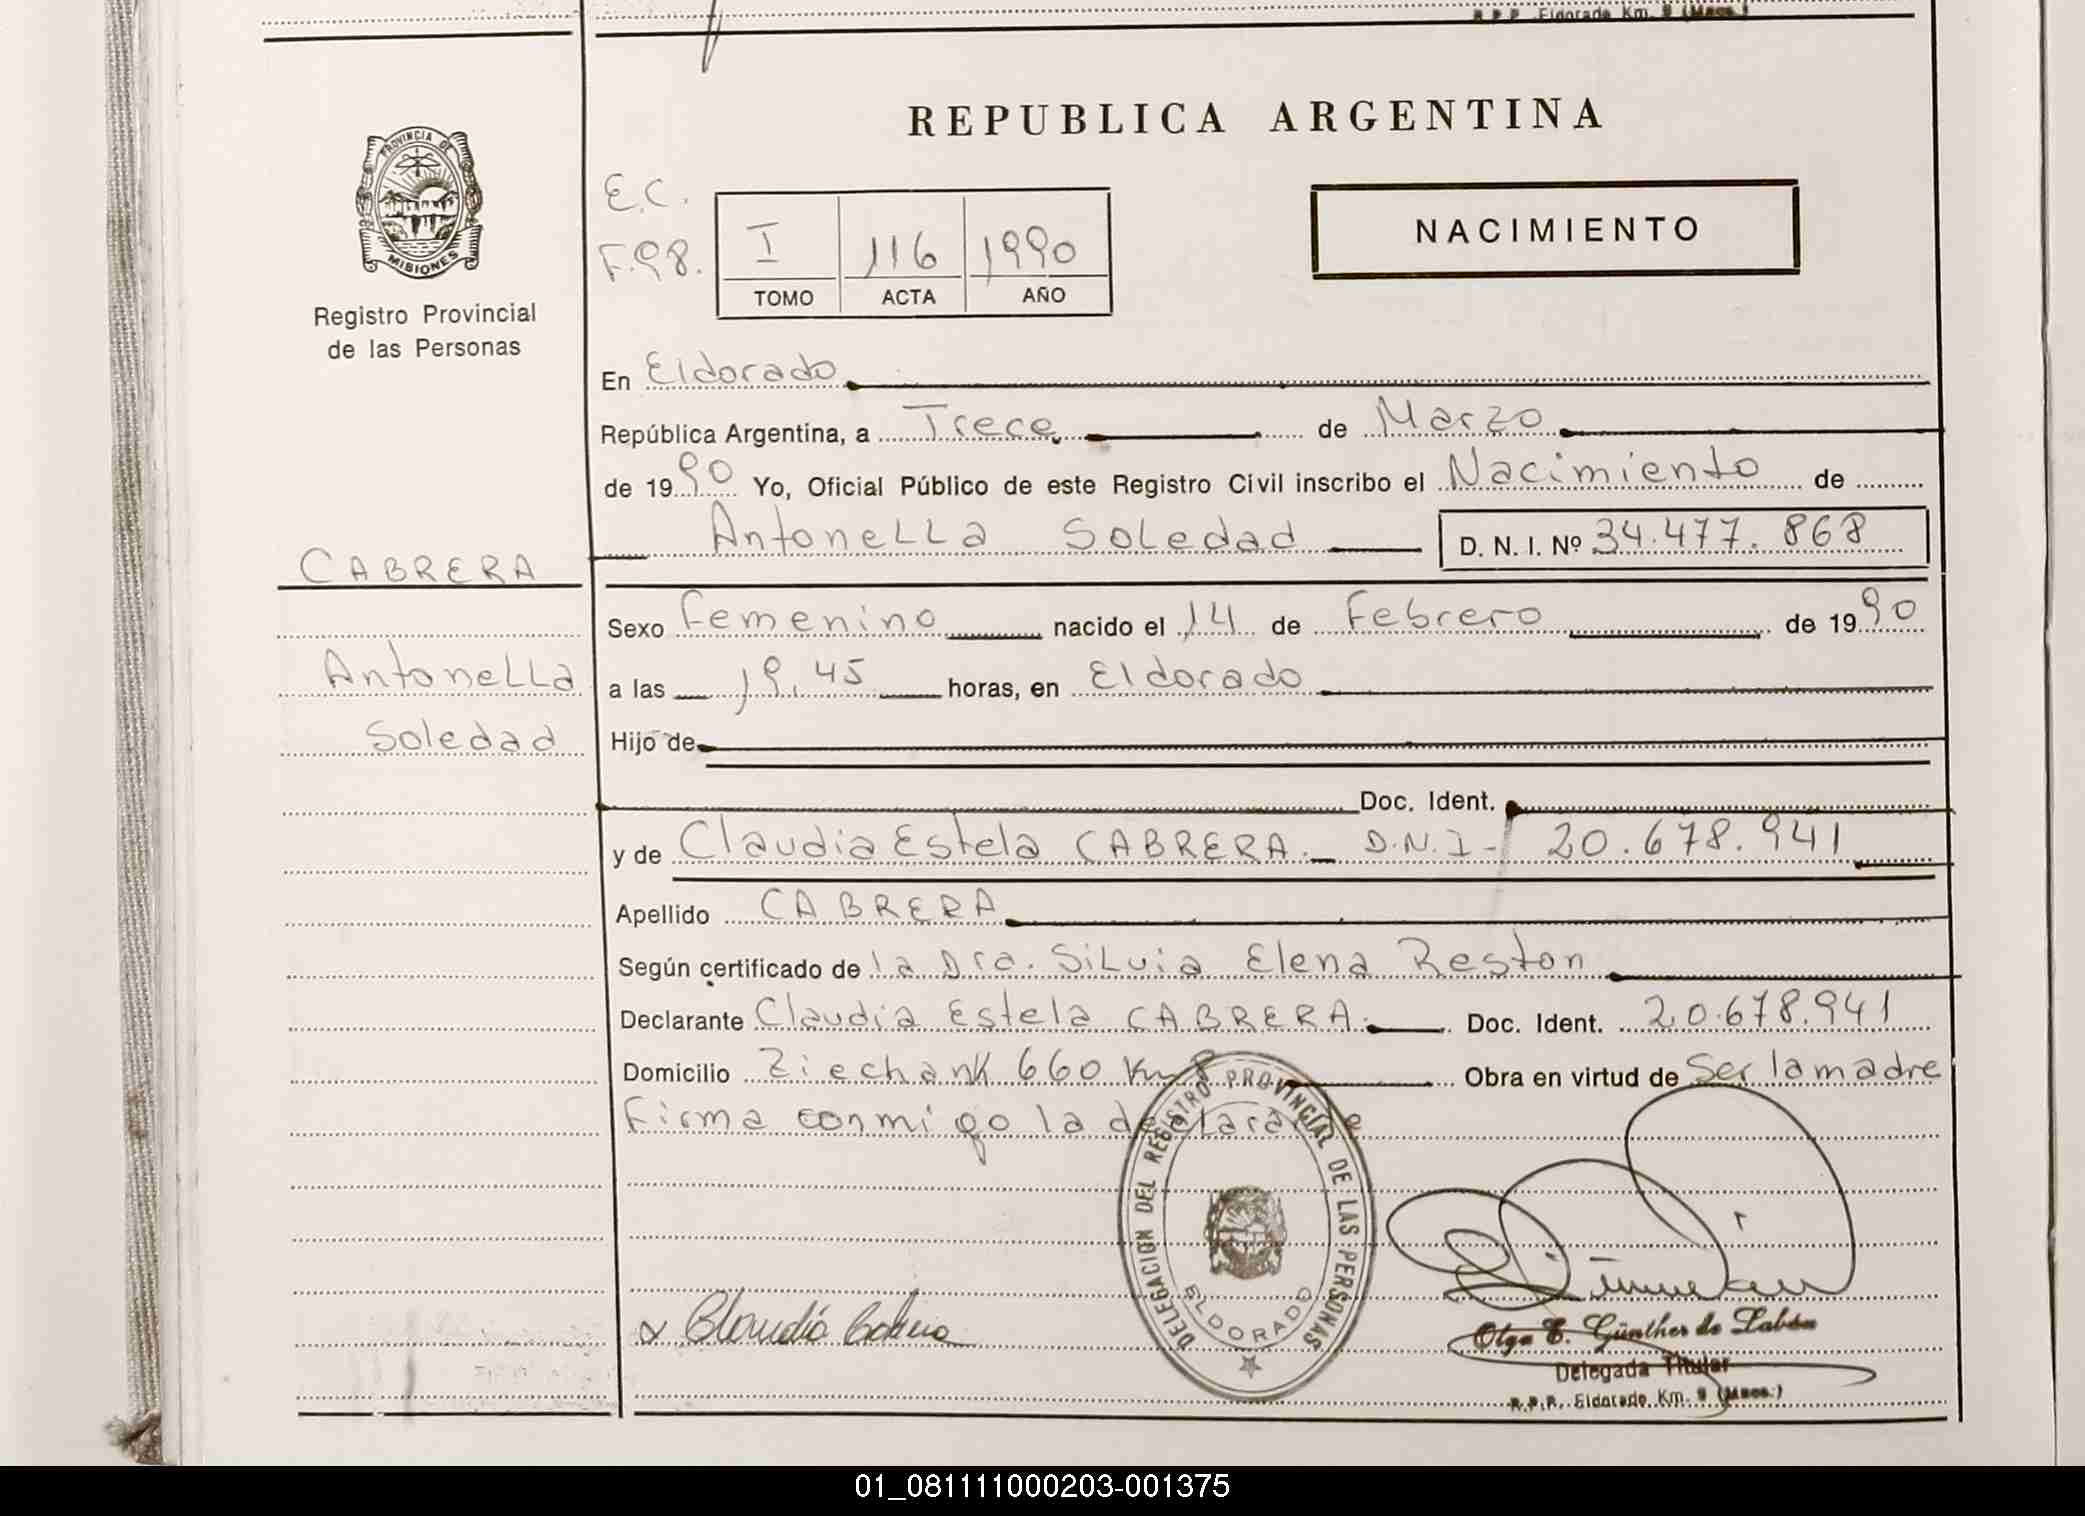 R.P.P. Eldorado Km. 9 (Mnes.)
REPUBLICA ARGENTINA
PROVINCIA DE
MISIONES
Registro Provincial
de las Personas
E.C.
F.98.
I 116 1990
TOMO ACTA AÑO
NACIMIENTO
En Eldorado
República Argentina, a Trece de Marzo
de 1990 Yo, Oficial Público de este Registro Civil inscribo el Nacimiento de
Antonella Soledad D. N. I. Nº 34.477.868
CABRERA
Sexo Femenino nacido el 14 de Febrero de 1990
Antonella
a las 19.45 horas, en Eldorado
Soledad
Hijo de
Doc. Ident.
y de Claudia Estela CABRERA. D.N.I- 20.678.941
Apellido CABRERA
Según certificado de la Dra. Silvia Elena Reston
Declarante Claudia Estela CABRERA. Doc. Ident. 20.678.941
Domicilio Ziechank 660 Km 8 Obra en virtud de Ser la madre
Firma conmigo la declarante
DELEGACION DEL REGISTRO PROVINCIAL DE LAS PERSONAS
ELDORADO
Claudia Cabrera
Olga E. Günther de Labán
Delegada Titular
R.P.P. Eldorado Km. 9 (Mnes.)
01_081111000203-001375